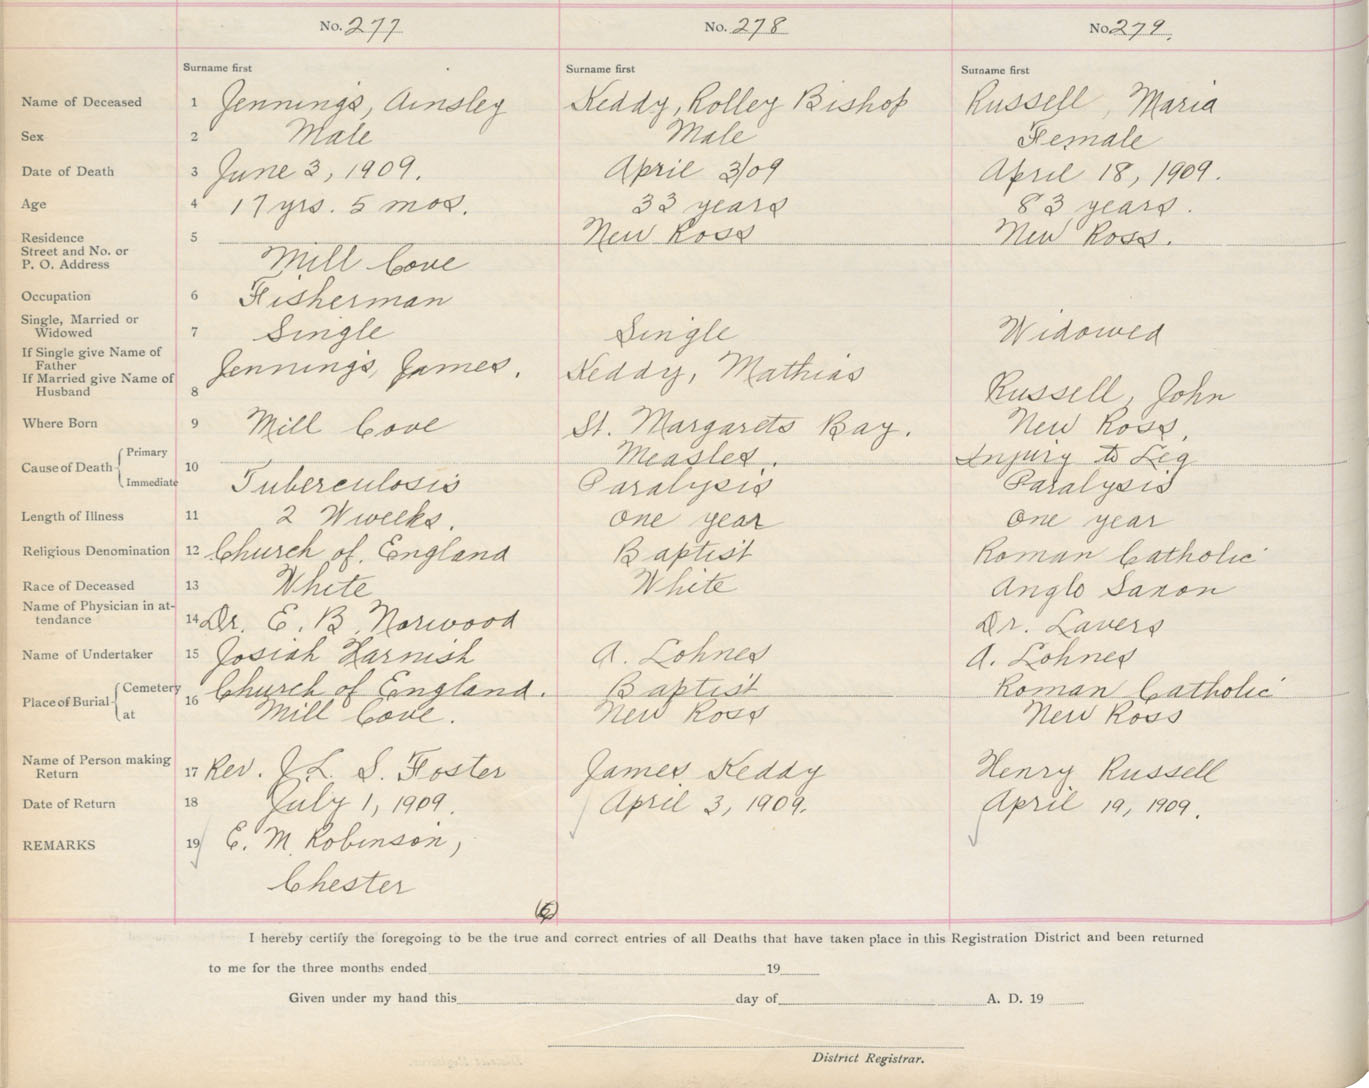 No. 277 No. 278 No. 279.
Surname first Surname first Surname first
Name of Deceased 1 Jennings, Ainsley Keddy, Rolley Bishop Russell, Maria
Sex 2 Male Male Female
Date of Death 3 June 3, 1909. April 3/09 April 18, 1909.
Age 4 17 yrs. 5 mos. 33 years 83 years.
Residence 5 New Ross New Ross.
Street and No. or
P. O. Address Mill Cove
Occupation 6 Fisherman
Single, Married or
Widowed 7 Single Single Widowed
If Single give Name of
Father Jennings, James. Keddy, Mathias
If Married give Name of
Husband 8 Russell, John
Where Born 9 Mill Cove St. Margarets Bay. New Ross,
Primary Measles. Injury to Leg
Cause of Death 10
Immediate Tuberculosis Paralysis Paralysis
Length of Illness 11 2 Wweeks. One year One year
Religious Denomination 12 Church of England Baptist Roman Catholic
Race of Deceased 13 White White Anglo Saxon
Name of Physician in at-
tendance 14 Dr. E. B. Norwood Dr. Lavers
Name of Undertaker 15 Josiah Harnish A. Lohnes A. Lohnes
Cemetery Church of England. Baptist Roman Catholic
Place of Burial 16
at Mill Cove. New Ross New Ross
Name of Person making
Return 17 Rev. J. L. S. Foster James Keddy Henry Russell
Date of Return 18 July 1, 1909. April 3, 1909. April 19, 1909.
REMARKS 19 E. M. Robinson,
Chester
I hereby certify the foregoing to be the true and correct entries of all Deaths that have taken place in this Registration District and been returned
to me for the three months ended 19
Given under my hand this day of A. D. 19
District Registrar.